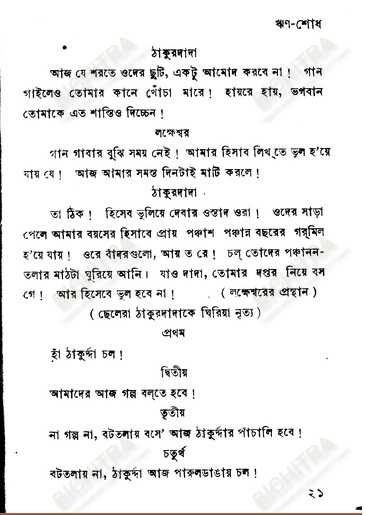 ঋণ-শোধ
ঠাকুরদাদা
আজ যে শরতে ওদের ছুটি, একটু আমোদ করবে না! গান
গাইলেও তোমার কানে খোঁচা মারে! হায়রে হায়, ভগবান
তোমাকে এত শাস্তিও দিচ্চেন!
লক্ষেশ্বর
গান গাবার বুঝি সময় নেই! আমার হিসাব লিখ্‌তে ভুল হ'য়ে
যায় যে! আজ আমার সমস্ত দিনটাই মাটি করলে!
ঠাকুরদাদা
তা ঠিক! হিসেব ভুলিয়ে দেবার ওস্তাদ ওরা! ওদের সাড়া
পেলে আমার বয়সের হিসাবে প্রায় পঞ্চাশ পঞ্চান্ন বছরের গর্‌মিল
হ'য়ে যায়! ওরে বাঁদরগুলো, আয় ত রে! চল্‌ তোদের পঞ্চানন-
তলার মাঠটা ঘুরিয়ে আনি। যাও দাদা, তোমার দপ্তর নিয়ে বস
গে! আর হিসেবে ভুল হবে না! (লক্ষেশ্বরের প্রস্থান)
(ছেলেরা ঠাকুরদাদাকে ঘিরিয়া নৃত্য)
প্রথম
হাঁ ঠাকুর্দ্দা চল!
দ্বিতীয়
আমাদের আজ গল্প বল্‌তে হবে!
তৃতীয়
না গল্প না, বটতলায় বসে' আজ ঠাকুর্দ্দার পাঁচালি হবে!
চতুর্থ
বটতলায় না, ঠাকুর্দ্দা আজ পারুলডাঙায় চল!
২১
BICHITRA
BICHITRA
BICHITRA
BICHITRA